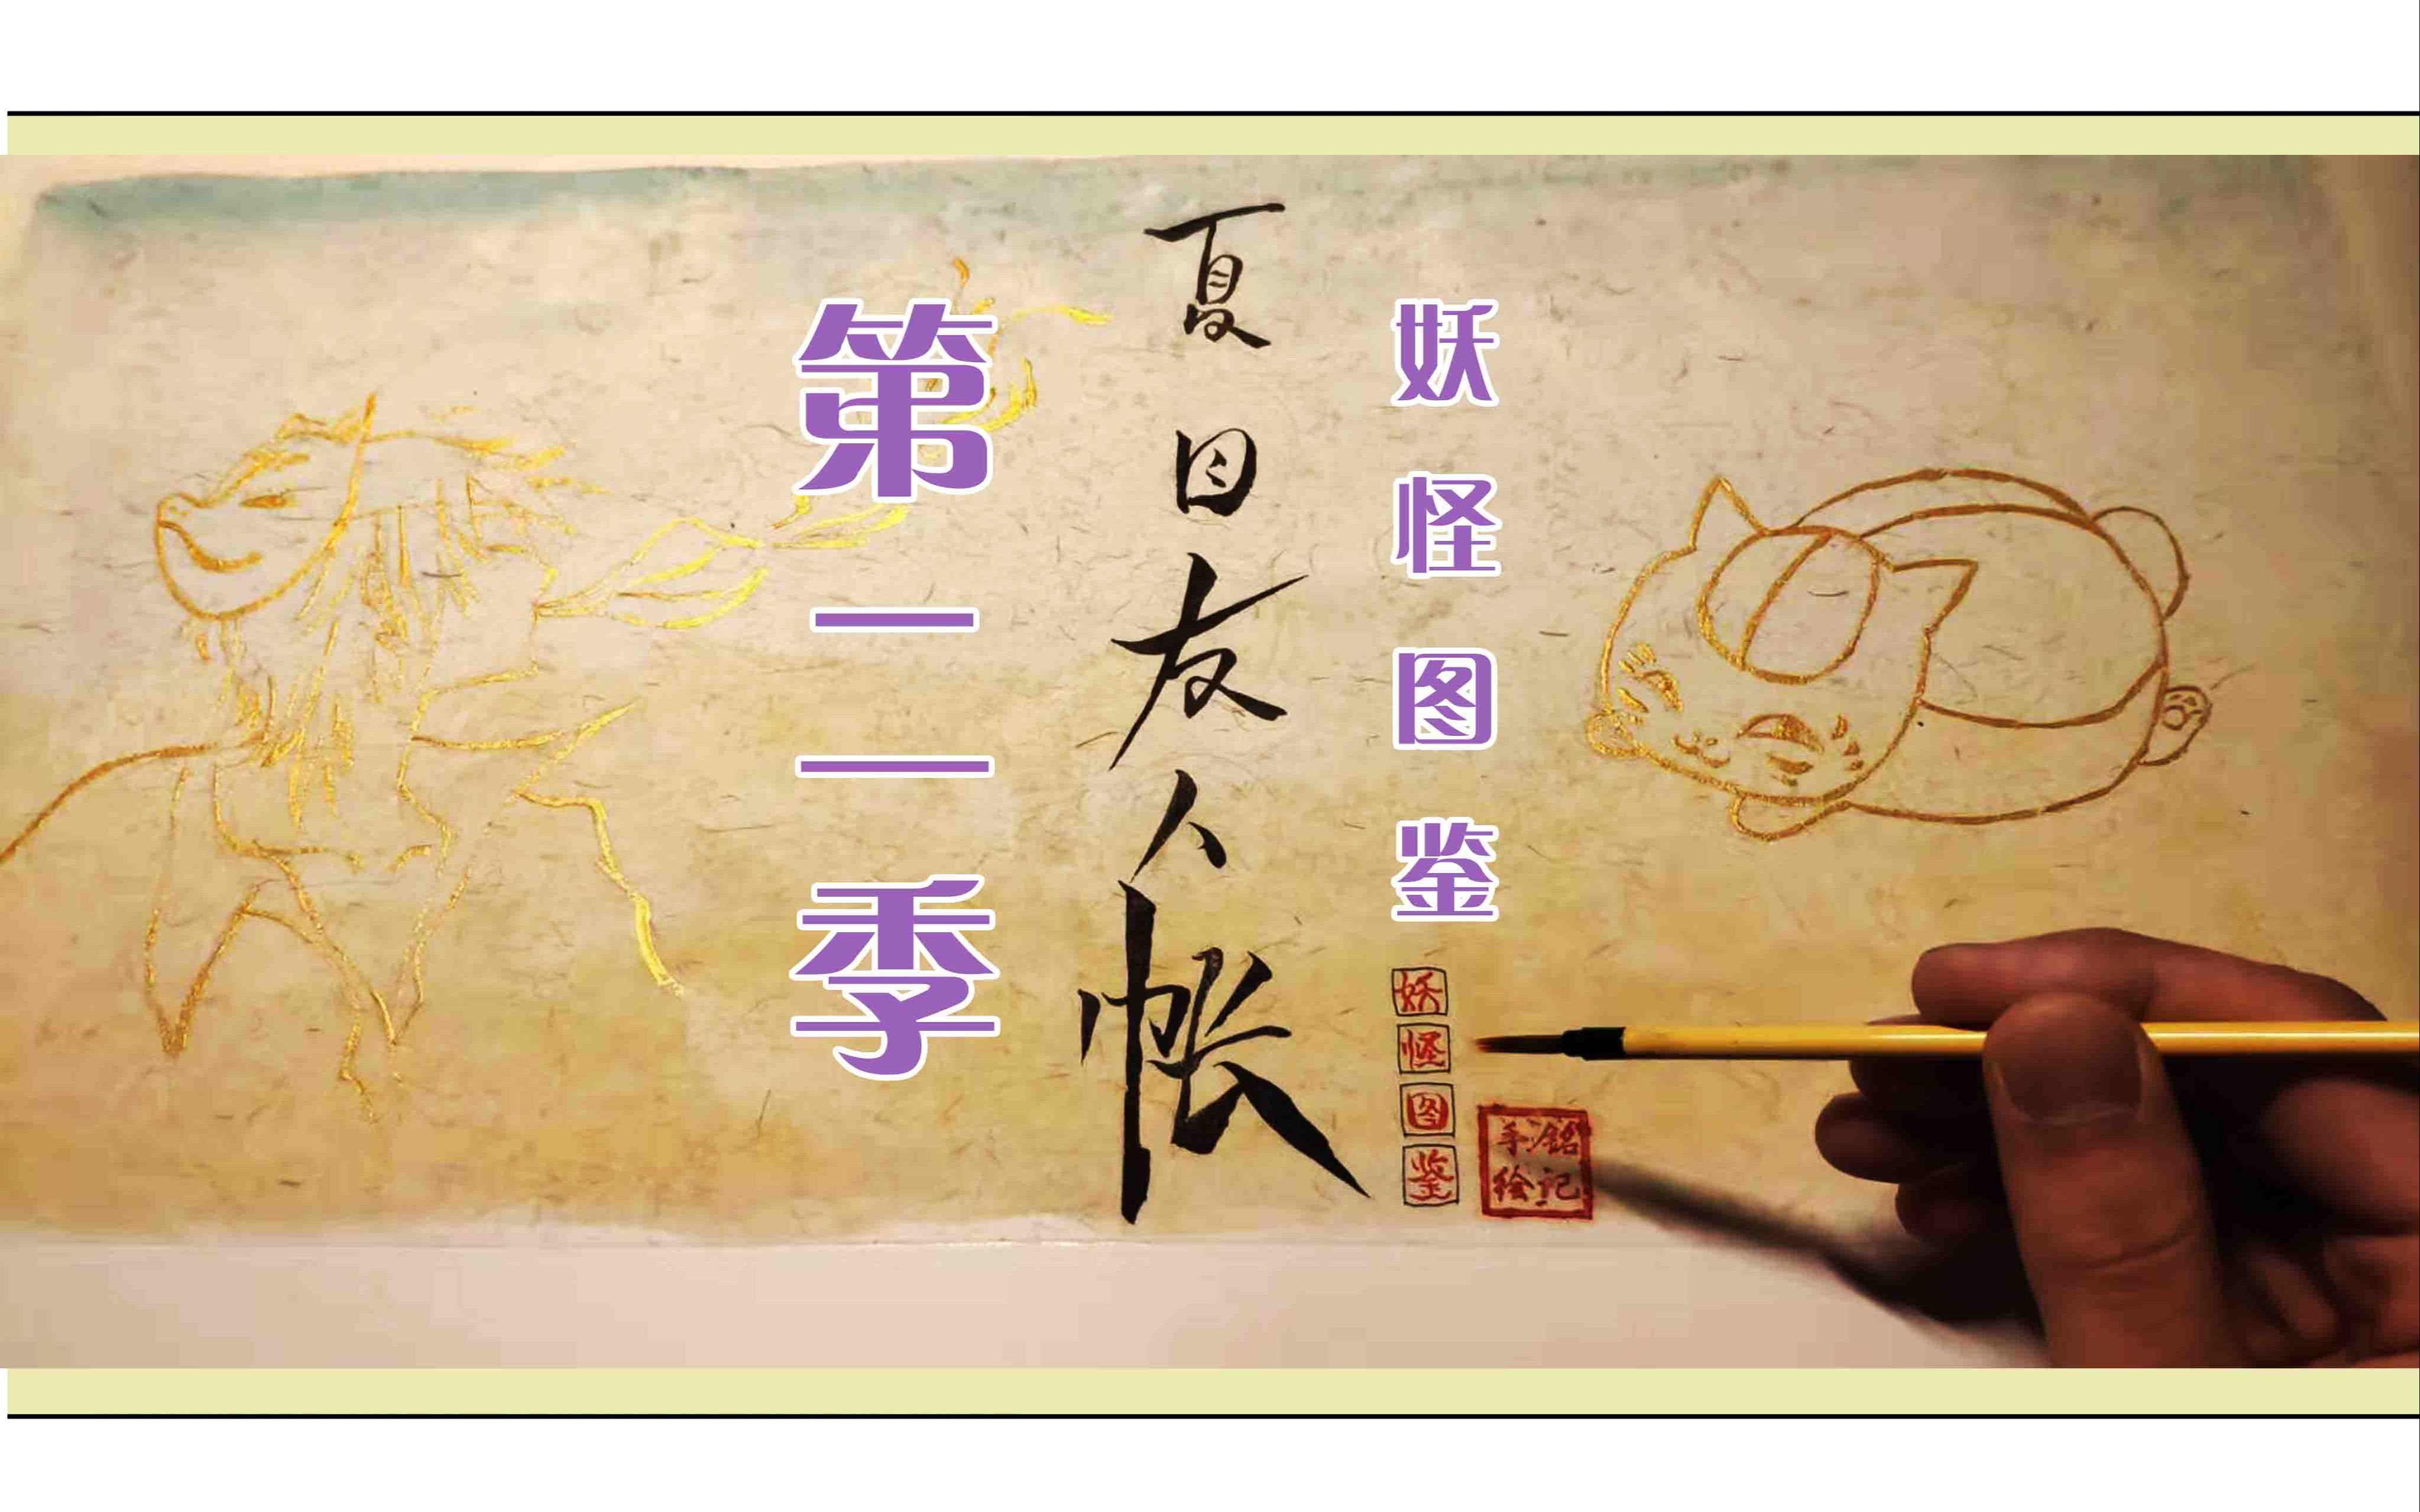 妖怪图鉴
夏目友人帐
第二季
妖怪图鉴
铭记
手绘